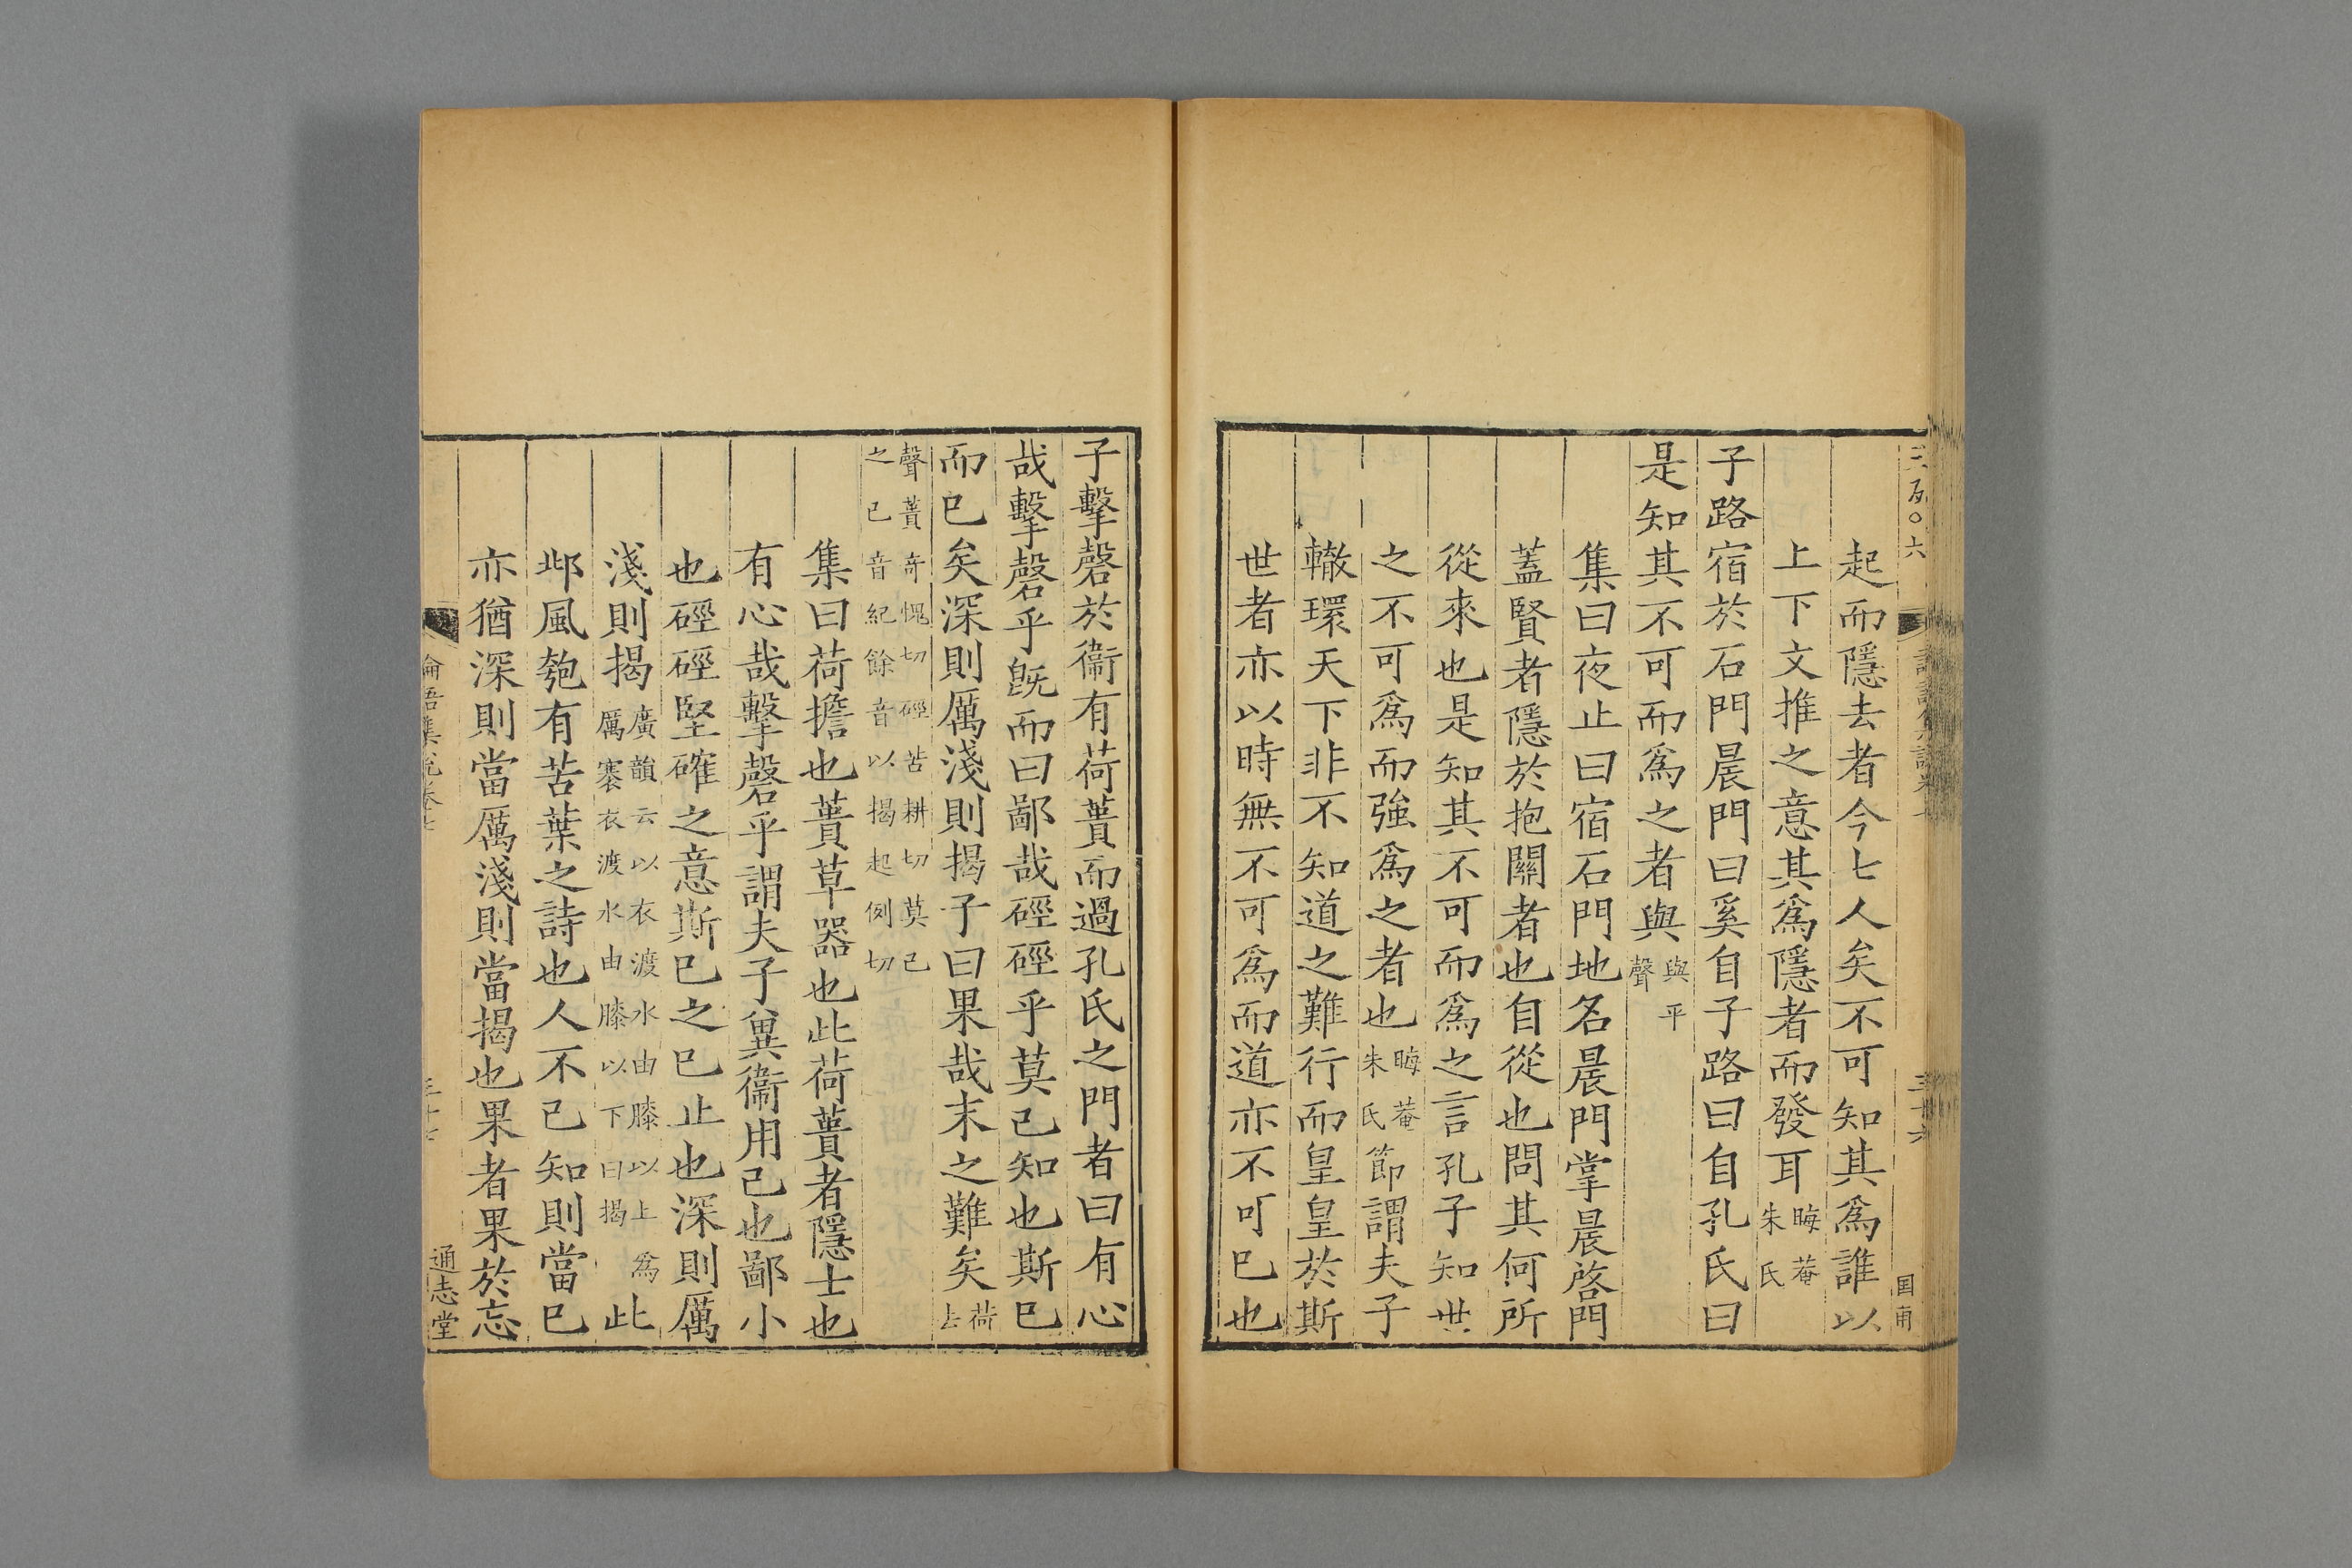 起而隱去者今七人矣不可知其爲誰以
上下文推之意其爲隱者而發耳晦菴朱氏
子路宿於石門晨門曰奚自子路曰自孔氏曰
是知其不可而爲之者與與平聲
集曰夜止曰宿石門地名晨門掌晨啓門
蓋賢者隱於抱關者也自從也問其何所
從來也是知其不可而爲之言孔子知世
之不可爲而強爲之者也晦菴朱氏節謂夫子
轍環天下非不知道之難行而皇皇於斯
世者亦以時無不可爲而道亦不可已也
子擊磬於衞有荷蕢而過孔氏之門者曰有心
哉擊磬乎旣而曰鄙哉硜硜乎莫己知也斯已
而已矣深則厲淺則揭子曰果哉末之難矣荷去
聲蕢奇愧切硜苦耕切莫己
之己音紀餘音以揭起例切
集曰荷擔也蕢草器也此荷蕢者隱士也
有心哉擊磬乎謂夫子兾衞用己也鄙小
也硜硜堅確之意斯已之已止也深則厲
淺則揭廣韻云以衣渡水由膝以上爲厲褰衣渡水由膝以下曰揭此
邶風匏有苦葉之詩也人不己知則當已
亦猶深則當厲淺則當揭也果者果於忘
通志堂